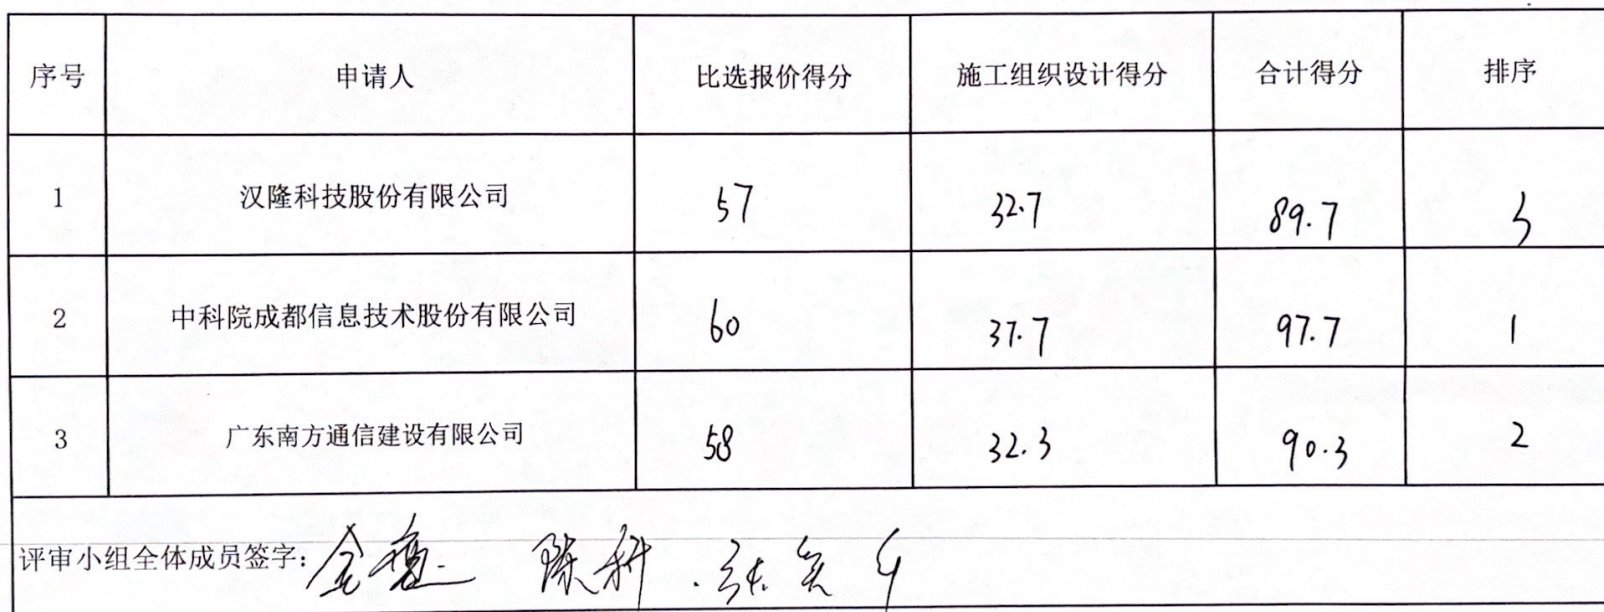 序号 申请人 比选报价得分 施工组织设计得分 合计得分 排序
1 汉隆科技股份有限公司 57 32.7 89.7 3
2 中科院成都信息技术股份有限公司 60 37.7 97.7 1
3 广东南方通信建设有限公司 58 32.3 90.3 2
评审小组全体成员签字： 陈科